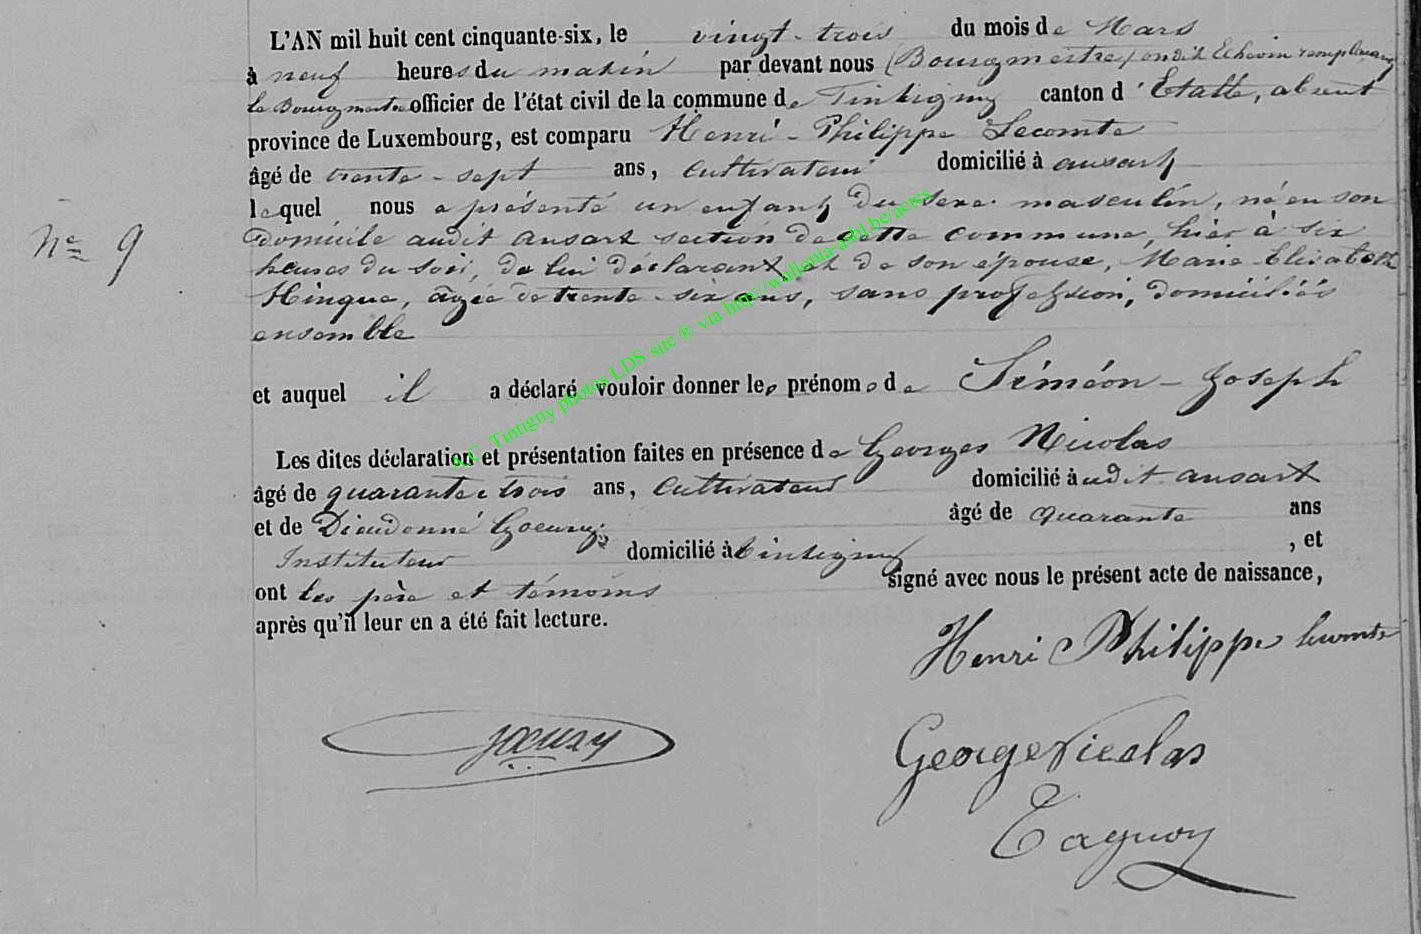 L'AN mil huit cent cinquante-six, le vingt-trois du mois de Mars
à neuf heures du matin par devant nous (Bourgmestre) Echevin remplaçant
le Bourgmestre officier de l'état civil de la commune de Tintigny canton d'Etalle, absent
province de Luxembourg, est comparu Henri-Philippe Lecomte
âgé de trente-sept ans, cultivateur domicilié à ansart
lequel nous a présenté un enfant du sexe masculin, né en son
domicile audit ansart section de cette commune, hier à six
heures du soir, de lui déclarant et de son épouse, Marie Elisabeth
Hinque, âgée de trente-six ans, sans profession, domiciliés
ensemble
N° 9
et auquel il a déclaré vouloir donner les prénoms de Siméon-Joseph
Les dites déclaration et présentation faites en présence de Georges Nicolas
âgé de quarante trois ans, cultivateur domicilié à udit ansart
et de Dieudonné Goeury âgé de quarante ans
Instituteur domicilié à tintigny , et
ont les père et témoins signé avec nous le présent acte de naissance,
après qu'il leur en a été fait lecture.
Henri Philippe lecomte
Goeury
George Nicolas
A.C. Tintigny photos LDS site ® via http://wallonia-asbl.be/actes